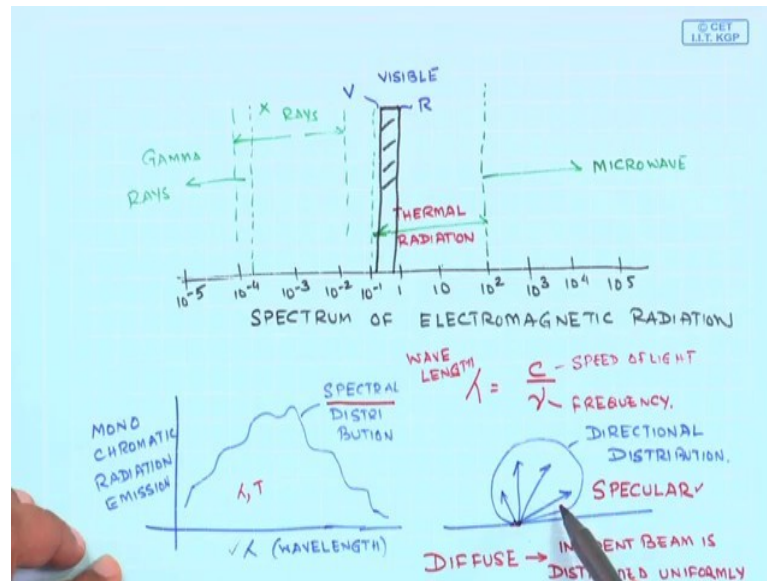 © CET
I.I.T. KGP
VISIBLE
V
R
X RAYS
GAMMA
RAYS
MICROWAVE
THERMAL
RADIATION
10-5 10-4 10-3 10-2 10-1 1 10 10² 10³ 10⁴ 10⁵
SPECTRUM OF ELECTROMAGNETIC RADIATION
WAVE
LENGTH λ = C/ν
C - SPEED OF LIGHT
ν - FREQUENCY.
MONO
CHROMATIC
RADIATION
EMISSION
SPECTRAL
DISTRI
BUTION
λ, T
✓ λ (WAVELENGTH)
DIRECTIONAL
DISTRIBUTION.
SPECULAR ✓
DIFFUSE → BEAM IS
UNIFORMLY